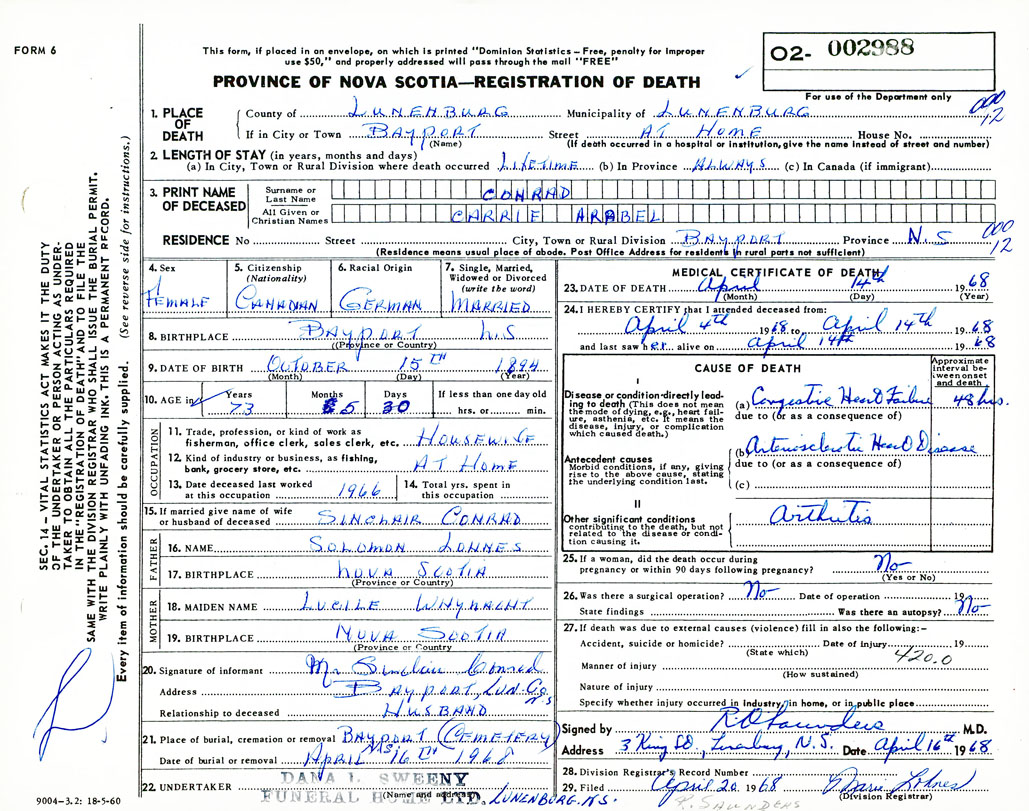 FORM 6
This form, if placed in an envelope, on which is printed "Dominion Statistics – Free, penalty for improper
use $50," and properly addressed will pass through the mail "FREE"
PROVINCE OF NOVA SCOTIA—REGISTRATION OF DEATH
O2- 002988
For use of the Department only
000
12
1. PLACE OF DEATH
County of LUNENBURG Municipality of LUNENBURG
If in City or Town BAYPORT Street AT HOME House No.
(Name) (If death occurred in a hospital or institution, give the name instead of street and number)
2. LENGTH OF STAY (in years, months and days)
(a) In City, Town or Rural Division where death occurred LIFETIME (b) In Province ALWAYS (c) In Canada (if immigrant)
3. PRINT NAME OF DECEASED
Surname or Last Name CONRAD
All Given or Christian Names CARRIE ARABEL
RESIDENCE No Street City, Town or Rural Division BAYPORT Province N.S
000
12
(Residence means usual place of abode. Post Office Address for residents in rural parts not sufficient)
4. Sex
FEMALE
5. Citizenship
(Nationality)
CANADIAN
6. Racial Origin
GERMAN
7. Single, Married,
Widowed or Divorced
(write the word)
MARRIED
8. BIRTHPLACE BAYPORT N.S
(Province or Country)
9. DATE OF BIRTH OCTOBER 15TH 1894
(Month) (Day) (Year)
10. AGE in Years Months Days If less than one day old
73 5 30 hrs. or min.
OCCUPATION
11. Trade, profession, or kind of work as
fisherman, office clerk, sales clerk, etc. HOUSEWIFE
12. Kind of industry or business, as fishing,
bank, grocery store, etc. AT HOME
13. Date deceased last worked
at this occupation 1966
14. Total yrs. spent in
this occupation
15. If married give name of wife
or husband of deceased SINCLAIR CONRAD
FATHER
16. NAME SOLOMON LOHNES
17. BIRTHPLACE NOVA SCOTIA
(Province or Country)
MOTHER
18. MAIDEN NAME LUCILE WHYNACHT
19. BIRTHPLACE NOVA SCOTIA
(Province or Country)
20. Signature of informant Mr Sinclair Conrad
Address BAYPORT, LUN. Co. N.S
Relationship to deceased HUSBAND
21. Place of burial, cremation or removal BAYPORT (CEMETERY) N.S
Date of burial or removal APRIL 16TH 1968
22. UNDERTAKER
DANA L. SWEENY
FUNERAL HOME LTD. LUNENBURG. N.S.
(Name and address)
MEDICAL CERTIFICATE OF DEATH
23. DATE OF DEATH April 14th 1968
(Month) (Day) (Year)
24. I HEREBY CERTIFY that I attended deceased from:
April 4th 1968 to April 14th 1968
and last saw her alive on April 14th 1968
CAUSE OF DEATH
Approximate
interval be-
tween onset
and death
I
Disease or condition directly lead-
ing to death (This does not mean
the mode of dying, e.g., heart fail-
ure, asthenia, etc. It means the
disease, injury, or complication
which caused death.)
(a) Congestive Heart Failure 48 hrs.
due to (or as a consequence of)
Antecedent causes
Morbid conditions, if any, giving
rise to the above cause, stating
the underlying condition last.
(b) Arteriosclerotic Heart Disease
due to (or as a consequence of)
(c)
II
Other significant conditions
contributing to the death, but not
related to the disease or condi-
tion causing it.
Arthritis
25. If a woman, did the death occur during
pregnancy or within 90 days following pregnancy? No
(Yes or No)
26. Was there a surgical operation? No Date of operation 19
State findings Was there an autopsy? No
27. If death was due to external causes (violence) fill in also the following:–
Accident, suicide or homicide? Date of injury 19
(State which)
420.0
Manner of injury
(How sustained)
Nature of injury
Specify whether injury occurred in industry, in home, or in public place
Signed by R.O Saunders M.D.
Address 3 King St., Lunenburg, N.S. Date April 16th 1968
28. Division Registrar's Record Number
29. Filed April 20 1968 Marie Lohnes
(Division Registrar)
R. SAUNDERS
SEC. 14 – VITAL STATISTICS ACT MAKES IT THE DUTY
OF THE UNDERTAKER OR PERSON ACTING AS UNDER-
TAKER TO OBTAIN ALL THE PARTICULARS REQUIRED
IN THE "REGISTRATION OF DEATH" AND TO FILE THE
SAME WITH THE DIVISION REGISTRAR WHO SHALL ISSUE THE BURIAL PERMIT.
WRITE PLAINLY WITH UNFADING INK. THIS IS A PERMANENT RECORD.
Every item of information should be carefully supplied. (See reverse side for instructions.)
9004-3.2: 18-5-60